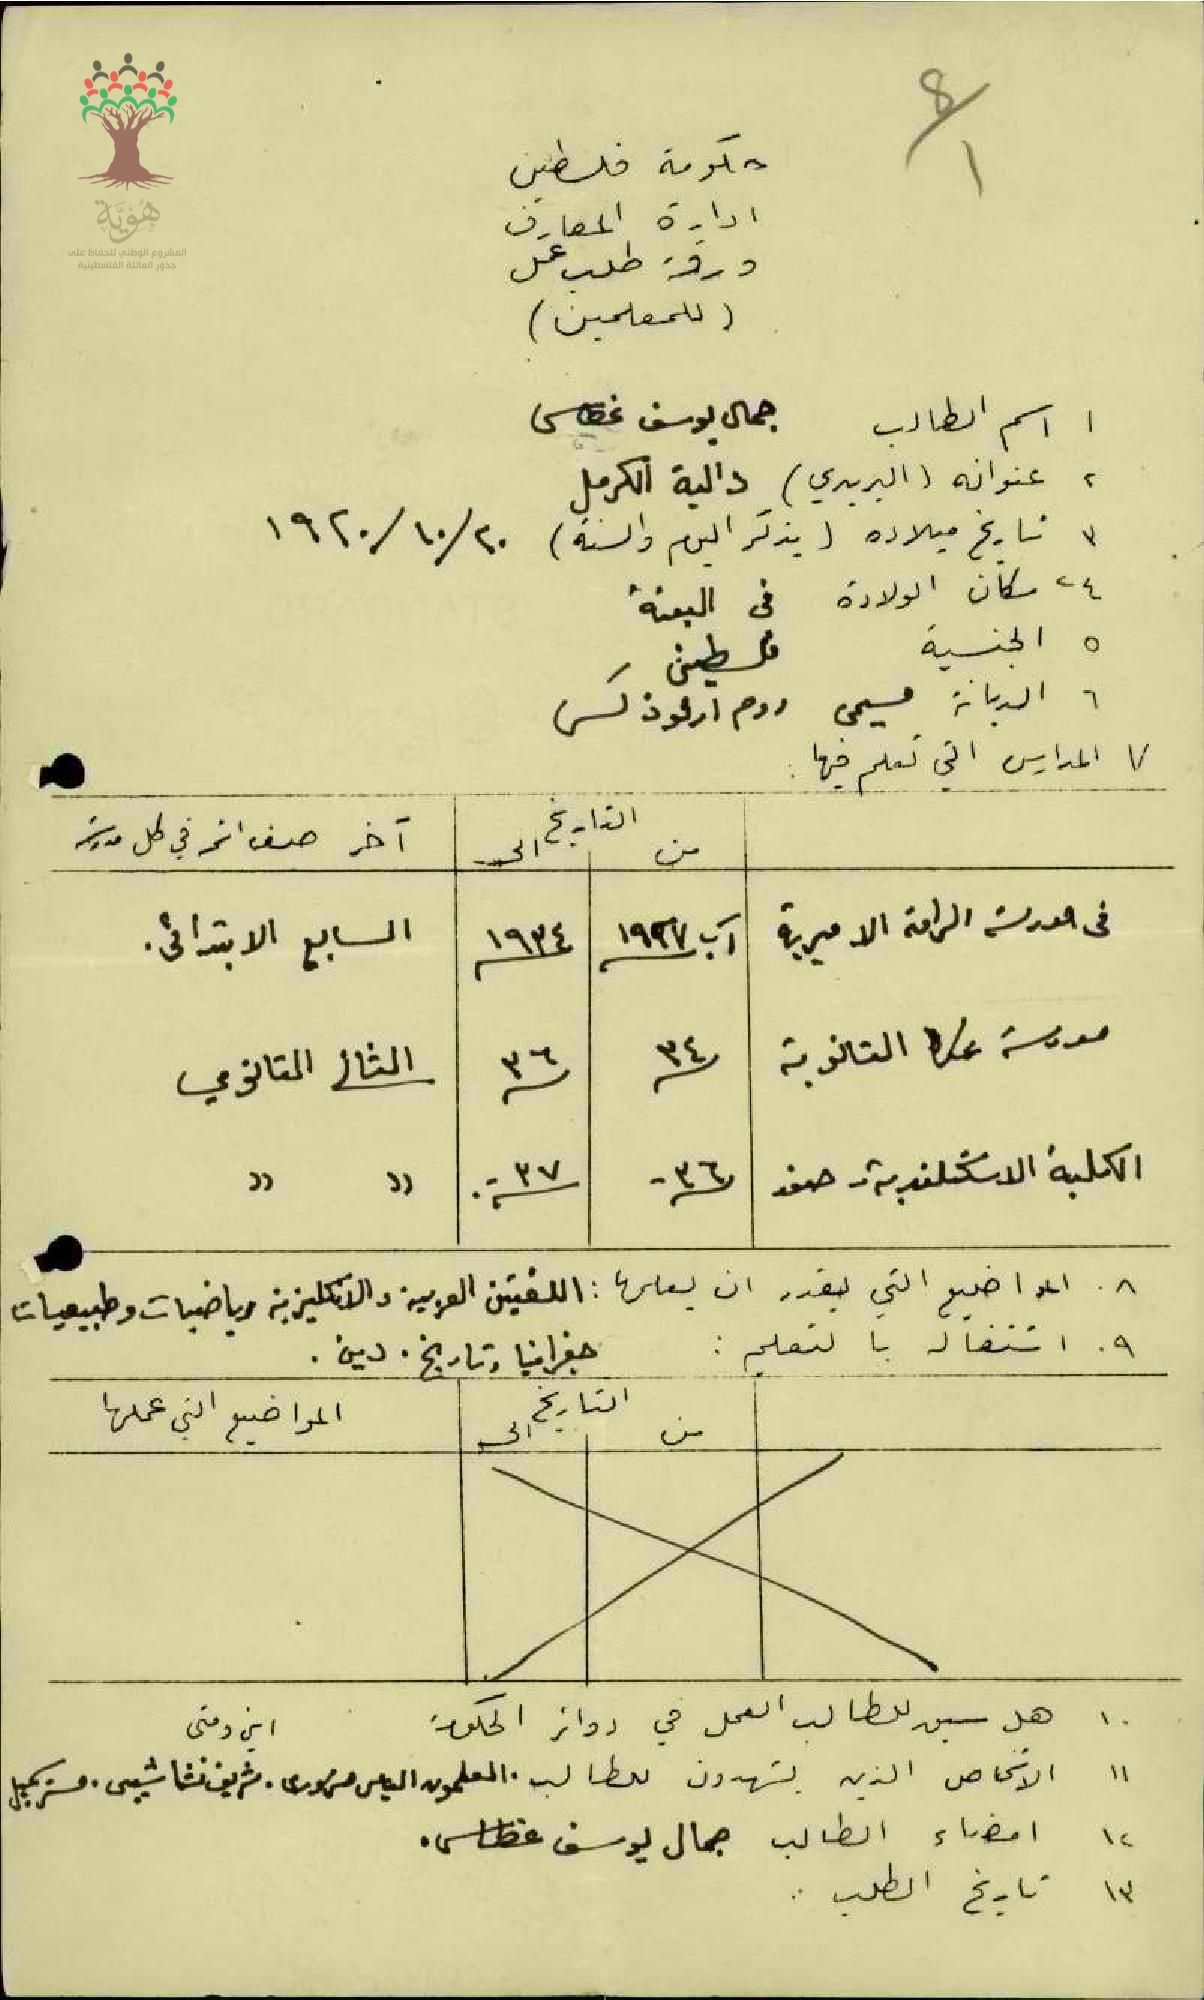 ٨/١
هُوِيَّة
المشروع الوطني للحفاظ على
جذور العائلة الفلسطينية
حكومة فلسطين
ادارة المعارف
ورقة طلب عمل
(للمعلمين)
١ اسم الطالب جمال يوسف غطاس
٢ عنوانه (البريدي) دالية الكرمل
٣ تاريخ ميلاده (يذكر اليوم والسنة) ٢٠/١٠/١٩٢٠
٤ مكان الولادة في البعنة
٥ الجنسية فلسطيني
٦ الديانة مسيحي روم ارثوذكس
٧ المدارس التي تعلم فيها:
التاريخ
من الى آخر صف اتمه في كل مدرسة
في مدرسة الرامة الاميرية آب ١٩٢٧ ١٩٣٤ السابع الابتدائي.
مدرسة عكا الثانوية ٣٤ ٣٦ الثاني الثانوي
الكلية الاسكتلندية - صفد ٣٦ ٣٧ " "
٨. المواضيع التي يقدر ان يعلمها: اللغتين العربية والانكليزية ورياضيات وطبيعيات
جغرافيا وتاريخ. دين.
٩. اشتغاله بالتعليم:
التاريخ
من الى المواضيع التي علمها
١٠. هل سبق للطالب العمل في دوائر الحكومة اين ومتى
١١ الاشخاص الذين يشهدون للطالب. المعلمون الياس شريف نشاشيبي.
١٢ امضاء الطالب جمال يوسف غطاس.
١٣ تاريخ الطلب: